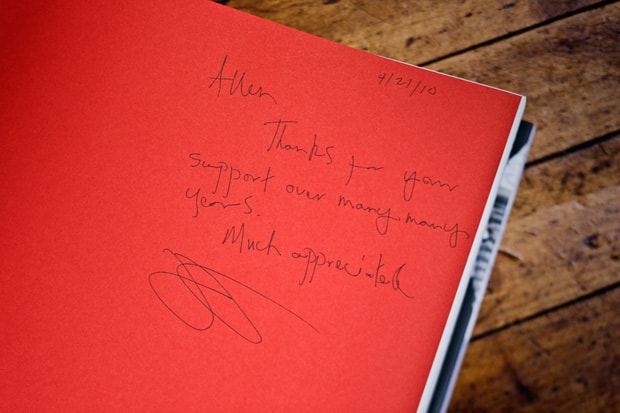 Allen,
4/21/10
Thanks for your
support over many, many
years.
Much appreciated